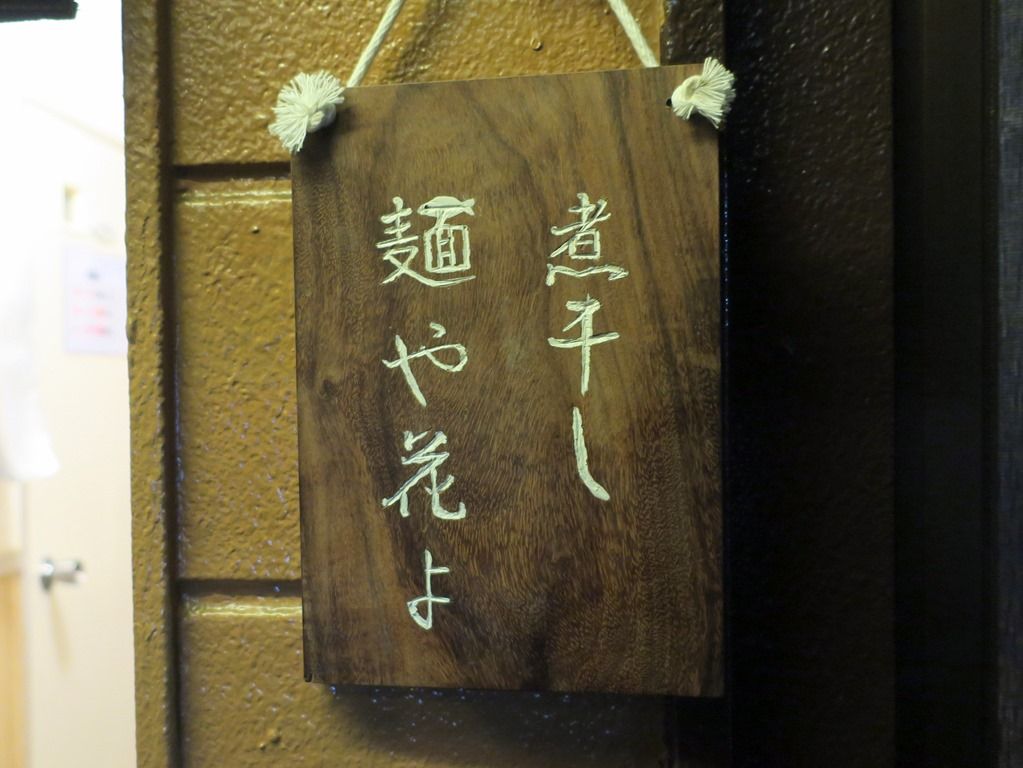 煮干し
麺や花よ